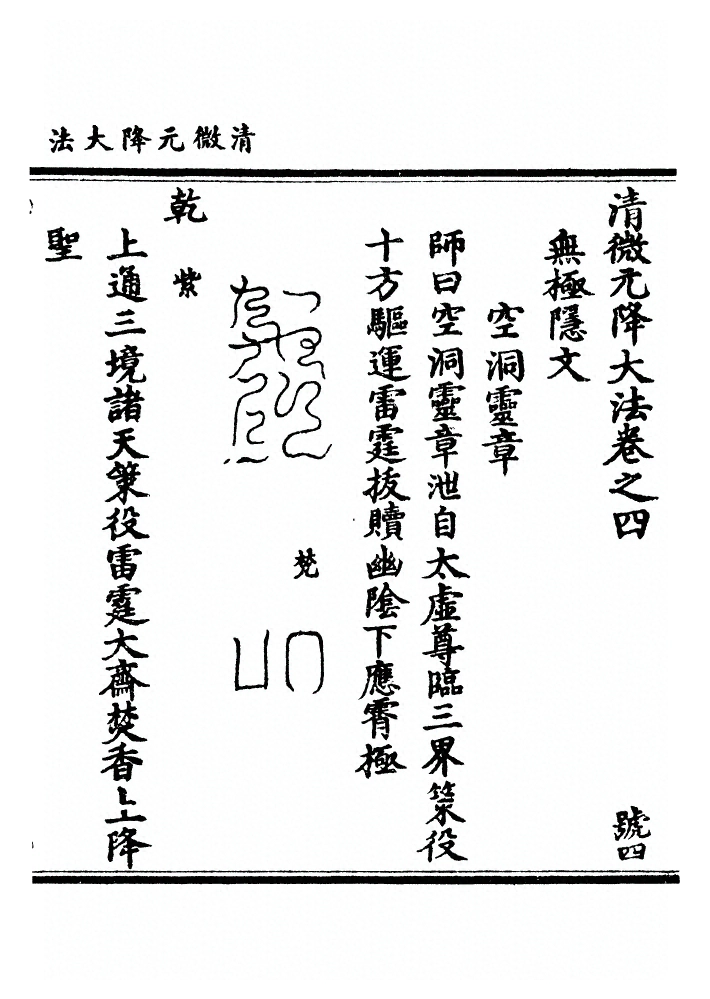 清微元降大法
清微元降大法卷之四
號四
無極隱文
空洞靈章
師曰空洞靈章泄自太虛尊臨三界策役
十方驅運雷霆拔贖幽陰下應霄極
梵
紫
乾
上通三境諸天策役雷霆大齋焚香上降
聖